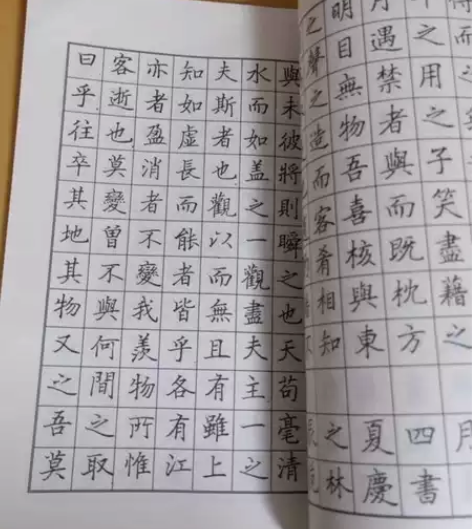 曰客亦知夫水與
乎逝者如斯而未
往也盈虛者如彼
卒莫消長也盖將
其變者而觀之則
地曾不能以一瞬
其不變者而觀之
物與我皆無盡也
又何羨乎且夫天
之間物各有主苟
吾之所有雖一毫
莫取惟江上之清
之明月
聲目遇之而
之無禁用之
造物者之
而吾與子
客喜而笑
肴核既盡
相與枕藉
知東方之
之夏四月
林慶書